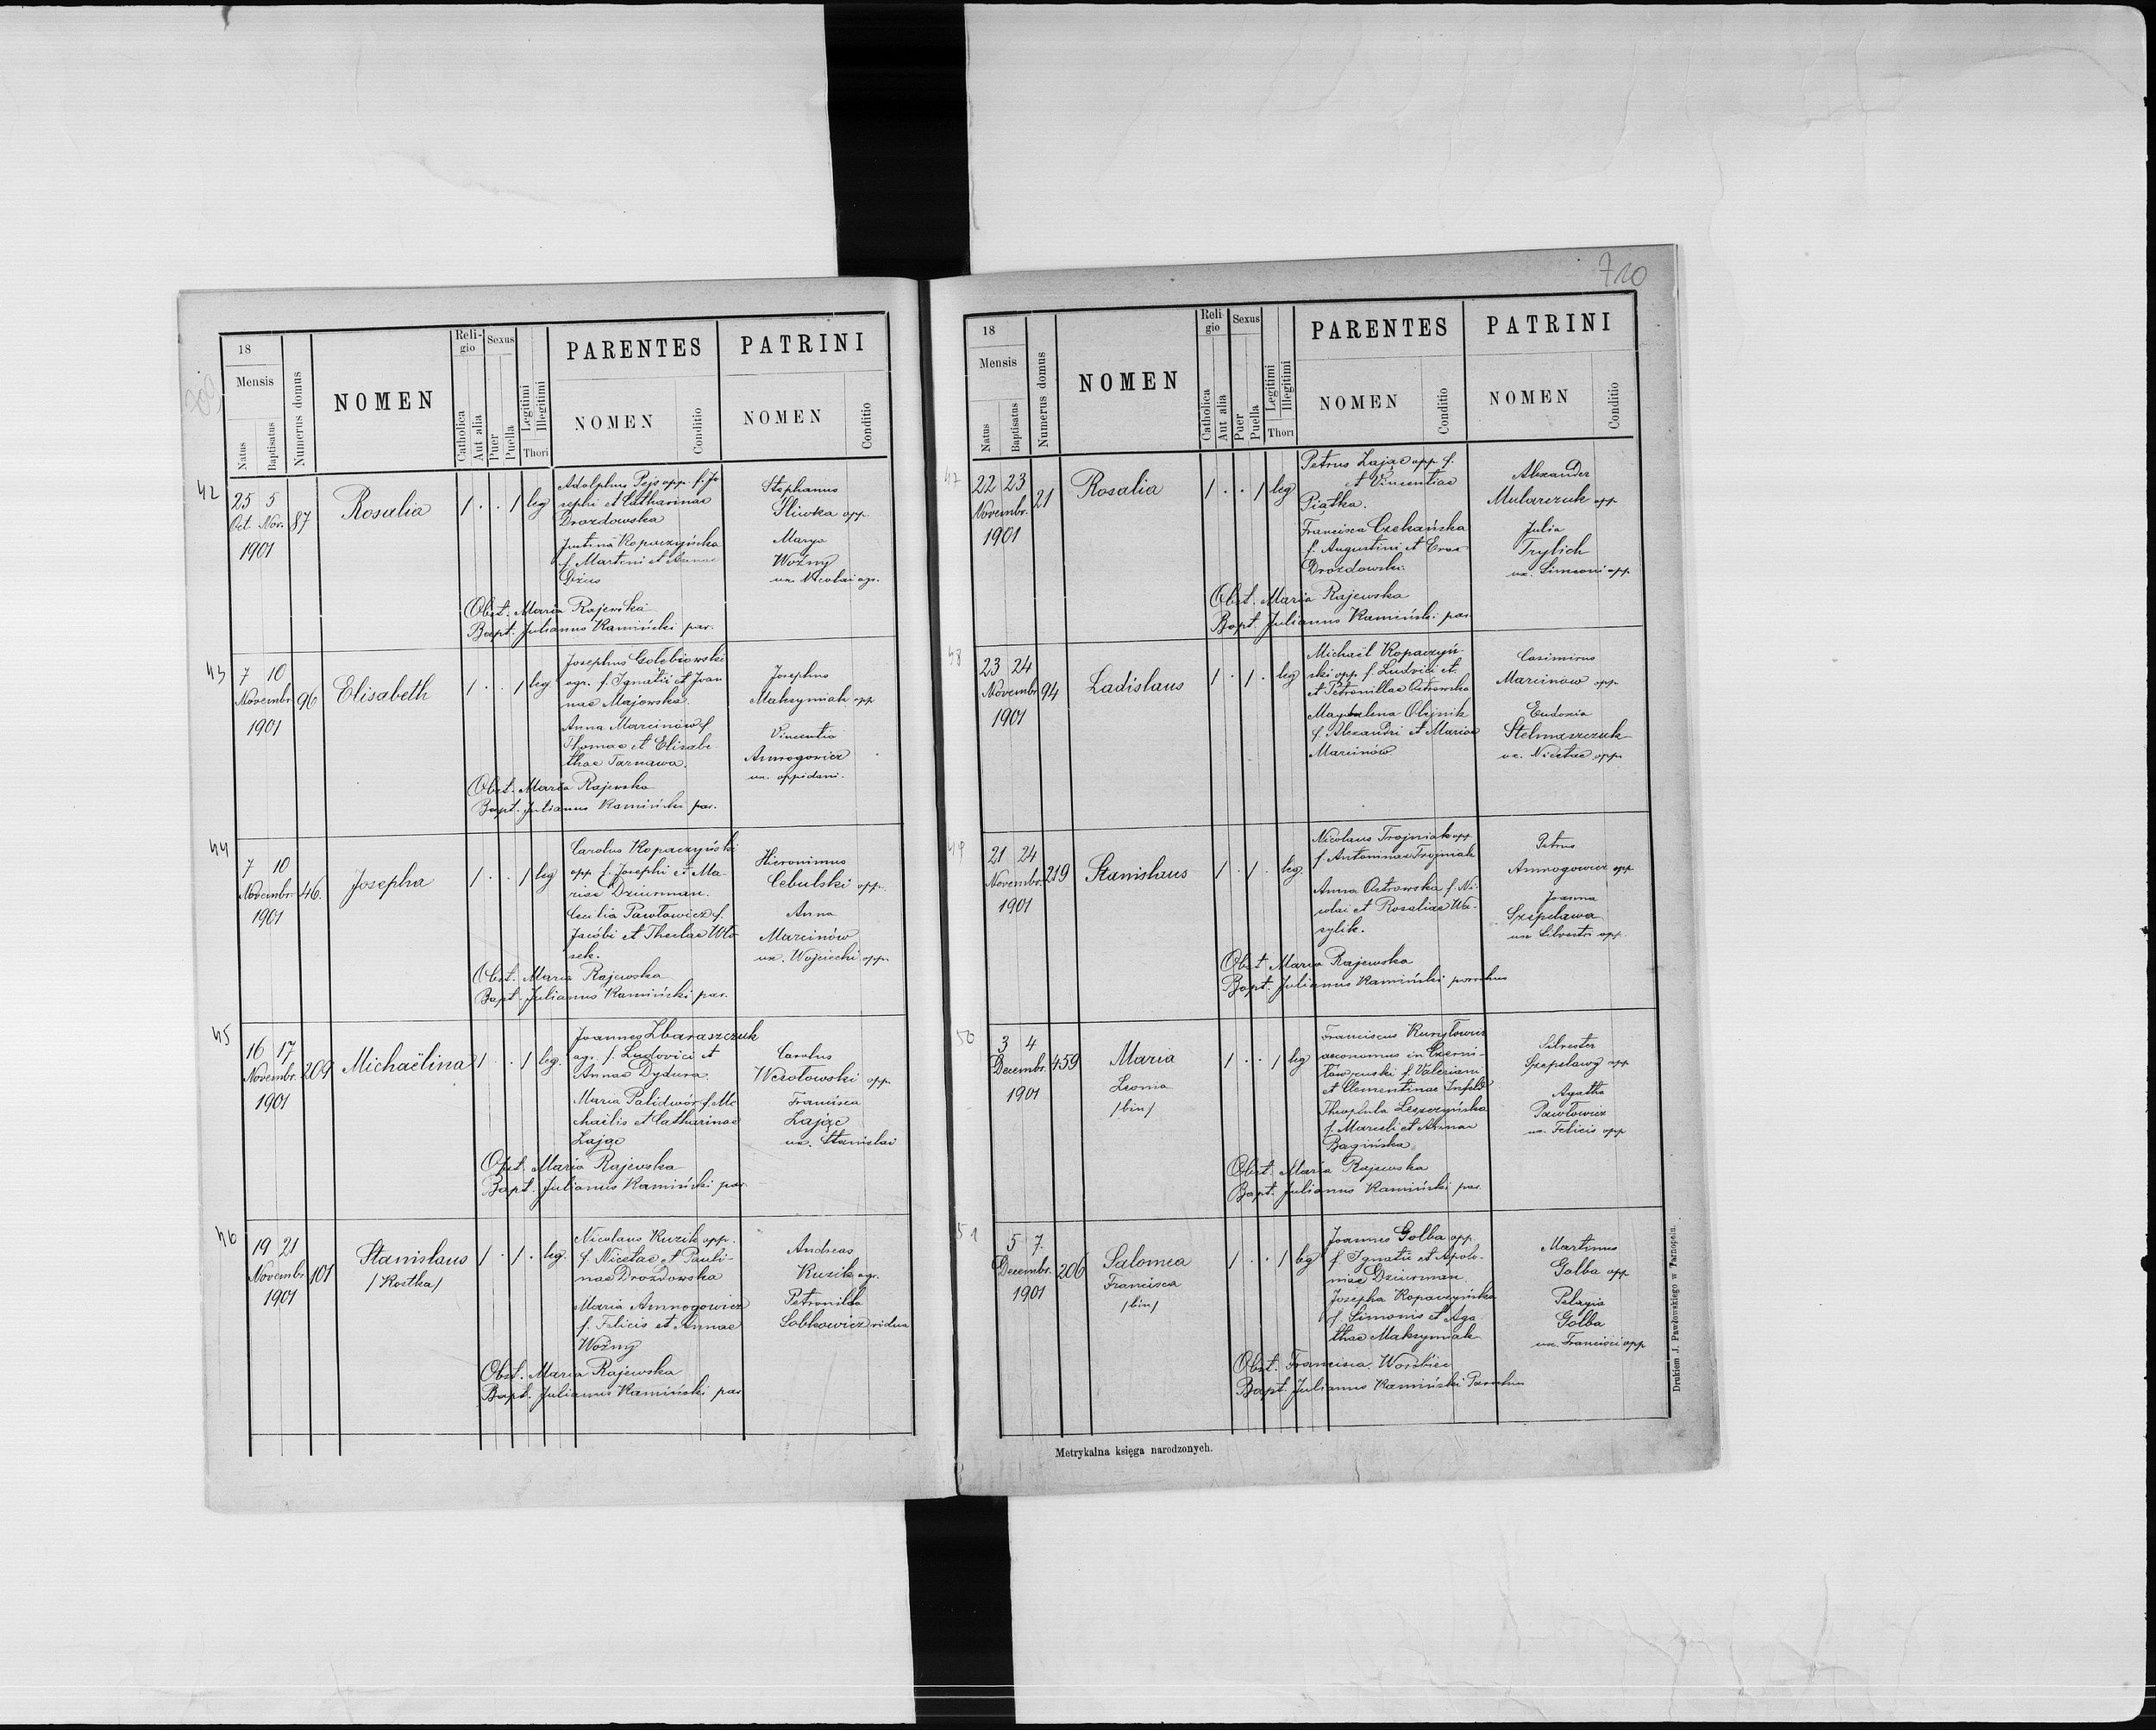 18
Mensis
Natus
Baptisatus
Numerus domus
NOMEN
Reli-
gio
Catholica
Aut alia
Sexus
Puer
Puella
Legitimi
Illegitimi
Thori
PARENTES
NOMEN
Conditio
PATRINI
NOMEN
Conditio
42
25 5
Oct. Nov.
1901
87
Rosalia
1 . . 1 leg
Adolphus Pejs opp. f. Jo
sephi et Catharinae
Drozdowska
Justina Kopaczyńska
f. Martini et Annae
Dżus
Stephanus
Śliwka opp.
Marya
Woźny
ux. Nicolai agr.
Obst. Maria Rajewska
Bapt. Julianus Kamiński par.
43
7 10
Novembr.
1901
96
Elisabeth
1 . . 1 leg
Josephus Gołębiowski
agr. f. Ignatii et Joan
nae Majewska.
Anna Marcinów f.
Thomae et Elisabe
thae Tarnawa.
Josephus
Maksymiak opp
Vincentia
Amrogowicz
ux. oppidani.
Obst. Maria Rajewska
Bapt. Julianus Kamiński par.
44
7 10
Novembr.
1901
46.
Josepha
1 . . 1 leg
Carolus Kopaczyński
opp f. Josephi et Ma-
riae Dziurman.
Cecilia Pawłowicz f.
Jacobi et Theclae Wło
sek.
Hieronimus
Cebulski opp.
Anna
Marcinów
ux. Wojciechi opp.
Obst. Maria Rajewska
Bapt. Julianus Kamiński par.
45
16 17
Novembr.
1901
209
Michaëlina
1 . . 1 leg.
Joannes Zbaraszczuk
agr. f. Ludovici et
Annae Dydura.
Maria Palidwór f. Mi
chailis et Catharinae
Zając
Carolus
Wesołowski opp.
Francisca
Zając
ux. Stanislai
Obst. Maria Rajewska
Bapt. Julianus Kamiński par
46
19 21
Novembr.
1901
101
Stanislaus
/Kostka/
1 . 1 . leg.
Nicolaus Kuzik opp.
f. Nicetae et Pauli-
nae Drozdowska
Maria Amrogowicz
f. Felicis et Annae
Woźny
Andreas
Kuzik agr.
Petronilla
Sobkowicz vidua
Obst. Maria Rajewska
Bapt. Julianus Kamiński par
710
18
Mensis
Natus
Baptisatus
Numerus domus
NOMEN
Reli-
gio
Catholica
Aut alia
Sexus
Puer
Puella
Legitimi
Illegitimi
Thori
PARENTES
NOMEN
Conditio
PATRINI
NOMEN
Conditio
47
22 23
Novembr.
1901
21
Rosalia
1 . . 1 leg
Petrus Zając opp f.
et Vincentiae
Piątka.
Francisca Czekańska
f. Augustini et Evae
Drozdowski.
Alexander
Mularczuk opp
Julia
Trylich
ux. Simeoni opp.
Obst. Maria Rajewska
Bapt. Julianus Kamiński par
48
23 24
Novembr.
1901
94
Ladislaus
1 . 1 . leg
Michaël Kopaczyń-
ski opp. f. Ludvici et
et Petronillae Ostrowska
Magdalena Olijnik
f. Alexandri et Mariae
Marcinów
Casimirus
Marcinow opp.
Eudoxia
Stelmaszczuk
ux. Nicetae opp.
49
21 24
Novembr.
1901
219
Stanislaus
1 . 1 . leg.
Nicolaus Trojniak opp
f. Antoninae Trojniak
Anna Ostrowska f. Ni-
colai et Rosaliae Wa-
sylik.
Petrus
Amrogowicz opp
Joanna
Szepelawa
ux Silvestri opp.
Obst. Maria Rajewska
Bapt. Julianus Kamiński parochus
50
3 4
Decembr.
1901
459
Maria
Leonia
/bin/
1 . . 1 leg
Franciscus Kuryłowicz
aeconomus in Czerni-
f. Valeriani
et Clementinae Infeld
Theophila Leszczyńska
f. Marceli et Annae
Bagińska.
Silvester
Szepelawy opp
Agatha
Pawłowicz
ux. Felicis opp
Obst. Maria Rajewska
Bapt. Julianus Kamiński par.
51
5 7.
Decembr.
1901
206
Salomea
Francisca
/bin/
1 . . 1 leg
Joannes Golba opp.
f. Ignatii et Apolo-
niae Dziurman.
Josepha Kopaczyńska
f. Simonis et Aga
thae Maksymiak
Martinus
Golba opp
Pelagia
Golba
ux. Francisci opp
Obst. Francisca Worobiec
Bapt. Julianus Kamiński Parochus
Metrykalna księga narodzonych.
Drukiem J. Pawłowskiego w Tarnopolu.